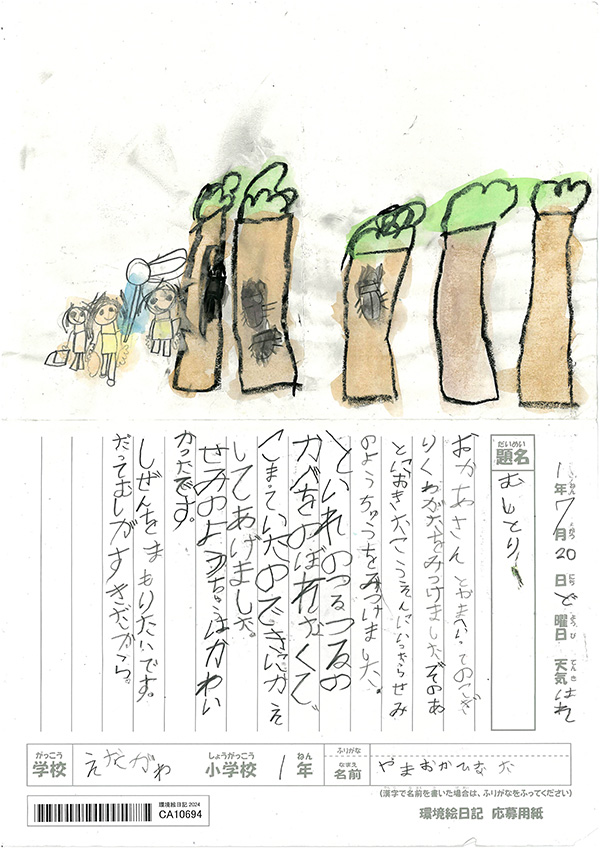 ねん がつ にち ようび てんき
1年7月20日ど曜日 天気はれ
だいめい
題名
むしとり
おかあさんとやまへいってのこぎ
りくわがたをみつけました。そのあ
とにおきなこうえんにいったらせみ
のようちゅうをみつけました。
といれのつるつるの
かべをのぼれなくて
こまっていたのできにかえ
してあげました。
せみのようちゅうはかわい
かったです。
しぜんをまもりたいです。
だってむしがすきだから。
がっこう しょうがっこう ねん
学校 えだがわ 小学校 1年
ふりがな
なまえ
名前 やまおかひなた
(漢字で名前を書いた場合は、ふりがなをふってください)
環境絵日記 2024
CA10694
環境絵日記 応募用紙